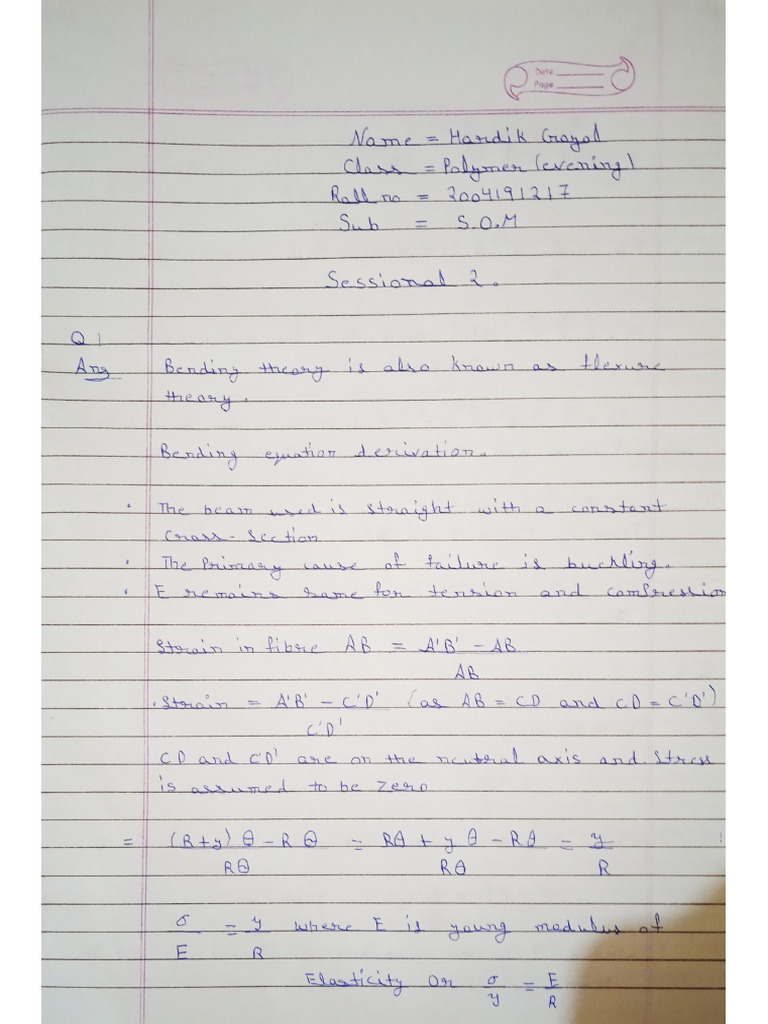 Date
Page
Name = Hardik Goyal
Class = Polymer (evening)
Roll no = 2004191217
Sub = S.O.M
Sessional 2.
Q1
Ans Bending theory is also known as flexure
theory.
Bending equation derivation.
• The beam used is straight with a constant
cross-section
• The Primary cause of failure is buckling.
• E remains same for tension and compression
Strain in fibre AB = A'B' - AB
AB
• Strain = A'B' - C'D' (as AB = CD and CD = C'D')
C'D'
CD and C'D' are on the neutral axis and stress
is assumed to be zero
= (R+y) θ - R θ = Rθ + y θ - Rθ = y
Rθ Rθ R
σ = y where E is young modulus of
E R
Elasticity Or σ = E
y R